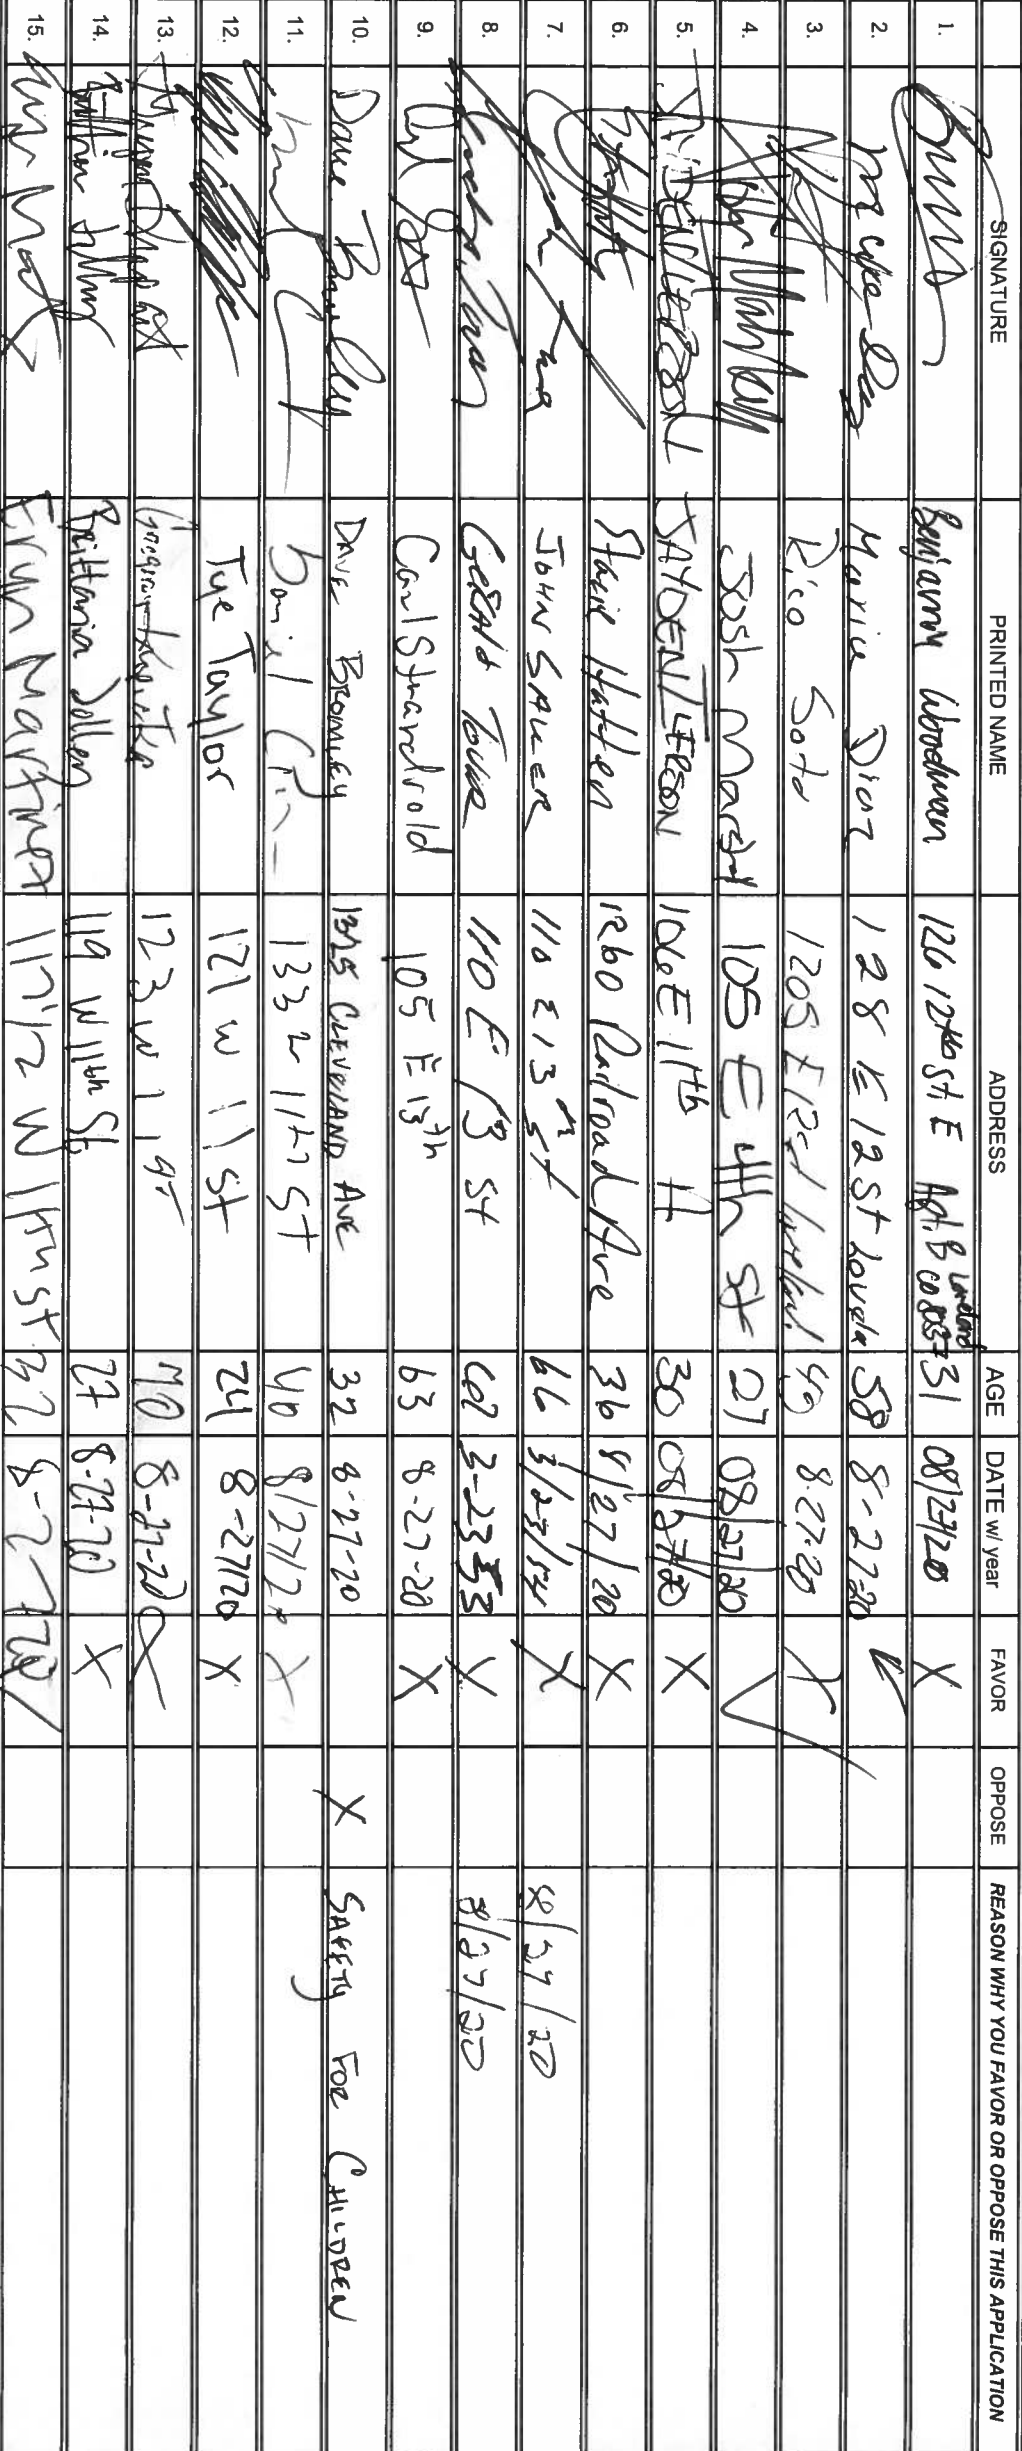 SIGNATURE PRINTED NAME ADDRESS AGE DATE w/ year FAVOR OPPOSE REASON WHY YOU FAVOR OR OPPOSE THIS APPLICATION
1. Benjamin Woodman 126 12th St E Apt. B Loveland CO 31 08/27/20 X
2. Diaz 128 E 12 St 58 8-27-20
3. Rico Soto 1205 E 49 8-27-20 X
4. Josh Marshall 105 E 4th St 27 08/27/20
5. JAYDEN LERSON 106 E 11th 30 08/27/20 X
6. Stacie Hatten 1260 Railroad Ave 36 8/27/20 X
7. JOHN SAUER 110 E 13th St 66 3/23/54 X 8/27/20
8. GERALD 110 E 13 St 67 2-23-53 X 8/27/20
9. Carl 105 E 13th 63 8-27-20 X
10. Dave Bromley DAVE BROMLEY CLEVELAND AVE 32 8-27-20 X SAFETY FOR CHILDREN
11. 133 11th St 40 8/27/20 X
12. Tye Taylor 121 W 11 St 24 8-27/20 X
13. 123 W 11 ST 70 8-27-20
14. Brittania 119 W 11th St. 27 8-27-20 X
15. Eryn Martinez W 11th St 32 8-27-20